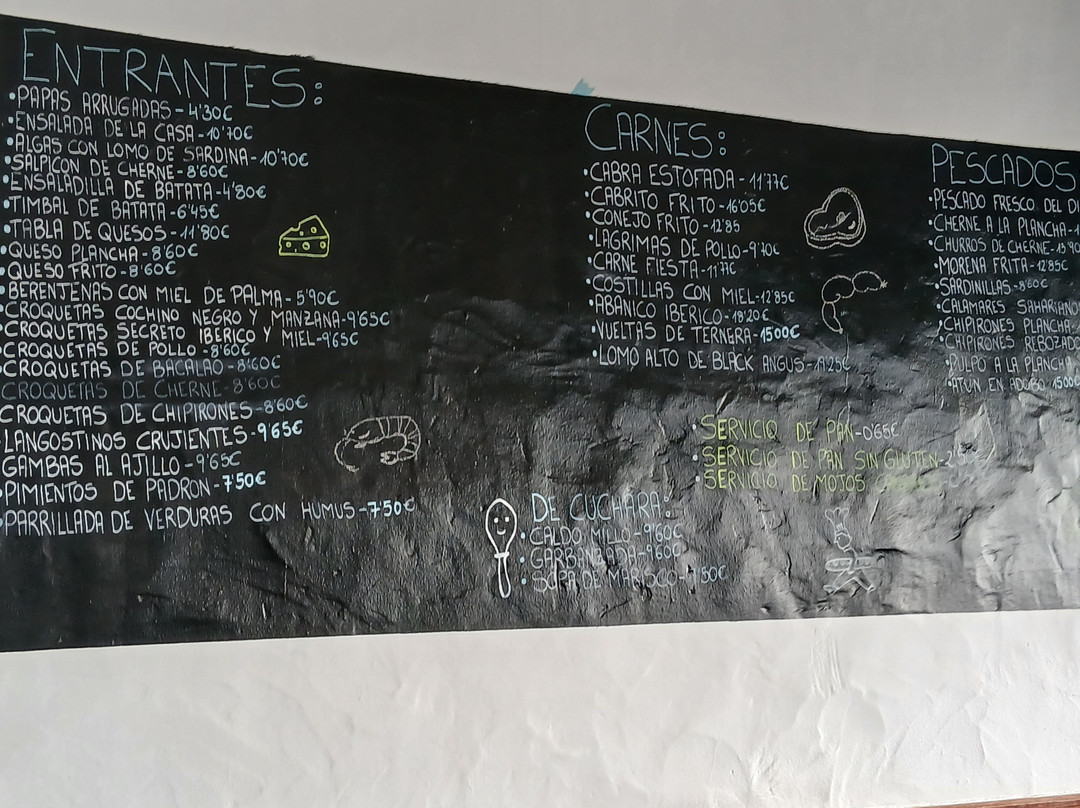 ENTRANTES:
•PAPAS ARRUGADAS-4'30€
•ENSALADA DE LA CASA-10'70€
•ALGAS CON LOMO DE SARDINA-10'70€
•SALPICON DE CHERNE-8'60€
•ENSALADILLA DE BATATA-4'80€
•TIMBAL DE BATATA-6'45€
•TABLA DE QUESOS-11'80€
•QUESO PLANCHA-8'60€
•QUESO FRITO-8'60€
•BERENJENAS CON MIEL DE PALMA-5'90€
•CROQUETAS COCHINO NEGRO Y MANZANA-9'65€
•CROQUETAS SECRETO IBERICO Y MIEL-9'65€
•CROQUETAS DE POLLO-8'60€
•CROQUETAS DE BACALAO-8'60€
CROQUETAS DE CHERNE-8'60€
CROQUETAS DE CHIPIRONES-8'60€
•LANGOSTINOS CRUJIENTES-9'65€
•GAMBAS AL AJILLO-9'65€
•PIMIENTOS DE PADRON-7'50€
•PARRILLADA DE VERDURAS CON HUMUS-7'50€
CARNES:
•CABRA ESTOFADA-11'77€
•CABRITO FRITO-16'05€
•CONEJO FRITO-12'85
•LAGRIMAS DE POLLO-9'70€
•CARNE FIESTA-11'77€
•COSTILLAS CON MIEL-12'85€
•ABANICO IBERICO-18'20€
•VUELTAS DE TERNERA-15'00€
•LOMO ALTO DE BLACK ANGUS-
•SERVICIO DE PAN-0'65€
•SERVICIO DE PAN SIN GLUTEN-
•SERVICIO DE MOJOS
DE CUCHARA:
•CALDO MILLO-9'60€
•GARBANZADA-9'60€
•SOPA DE MARISCO-
PESCADOS
•PESCADO FRESCO DEL
•CHERNE A LA PLANCHA-
•CHURROS DE CHERNE-
•MORENA FRITA-12'85€
•SARDINILLAS-8'60€
•CALAMARES SAHARIANO
•CHIPIRONES PLANCHA-
•CHIPIRONES REBOZADO
•PULPO A LA PLANCHA
•ATUN EN ADOBO 15'00